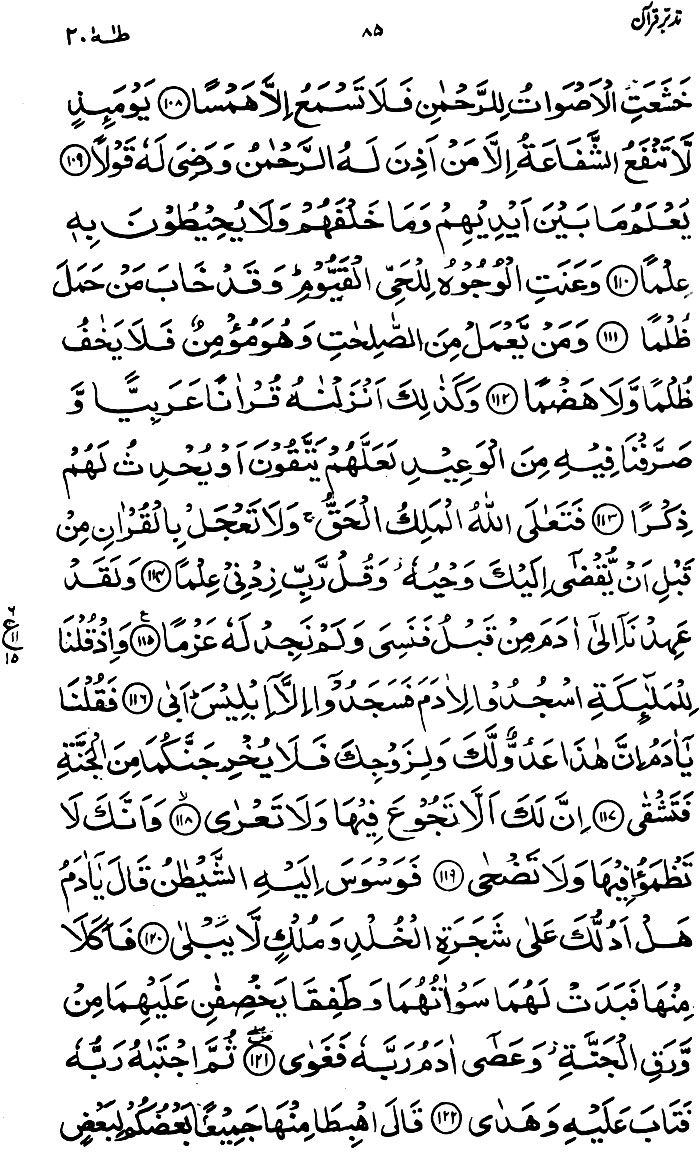 تدبر قرآن ۸۵ طٰهٰ ۲۰
خَشَعَتِ الْاَصْوَاتُ لِلرَّحْمٰنِ فَلَا تَسْمَعُ اِلَّا هَمْسًا ﴿۱۰۸﴾ يَوْمَئِذٍ
لَّا تَنْفَعُ الشَّفَاعَةُ اِلَّا مَنْ اَذِنَ لَهُ الرَّحْمٰنُ وَرَضِیَ لَهٗ قَوْلًا ﴿۱۰۹﴾
يَعْلَمُ مَا بَيْنَ اَيْدِيْهِمْ وَمَا خَلْفَهُمْ وَلَا يُحِيْطُوْنَ بِهٖ
عِلْمًا ﴿۱۱۰﴾ وَعَنَتِ الْوُجُوْهُ لِلْحَیِّ الْقَيُّوْمِ ؕ وَقَدْ خَابَ مَنْ حَمَلَ
ظُلْمًا ﴿۱۱۱﴾ وَمَنْ يَّعْمَلْ مِنَ الصّٰلِحٰتِ وَهُوَ مُؤْمِنٌ فَلَا يَخٰفُ
ظُلْمًا وَّلَا هَضْمًا ﴿۱۱۲﴾ وَكَذٰلِكَ اَنْزَلْنٰهُ قُرْاٰنًا عَرَبِيًّا وَّ
صَرَّفْنَا فِيْهِ مِنَ الْوَعِيْدِ لَعَلَّهُمْ يَتَّقُوْنَ اَوْ يُحْدِثُ لَهُمْ
ذِكْرًا ﴿۱۱۳﴾ فَتَعٰلَى اللّٰهُ الْمَلِكُ الْحَقُّ ۚ وَلَا تَعْجَلْ بِالْقُرْاٰنِ مِنْ
قَبْلِ اَنْ يُّقْضٰۤى اِلَيْكَ وَحْيُهٗ ؗ وَقُلْ رَّبِّ زِدْنِیْ عِلْمًا ﴿۱۱۴﴾ وَلَقَدْ
عَهِدْنَاۤ اِلٰۤى اٰدَمَ مِنْ قَبْلُ فَنَسِیَ وَلَمْ نَجِدْ لَهٗ عَزْمًا ﴿۱۱۵﴾ ع وَاِذْ قُلْنَا
۶ ع ۱۱ ۱۵
لِلْمَلٰٓئِكَةِ اسْجُدُوْا لِاٰدَمَ فَسَجَدُوْۤا اِلَّاۤ اِبْلِيْسَ ؕ اَبٰى ﴿۱۱۶﴾ فَقُلْنَا
يٰۤاٰدَمُ اِنَّ هٰذَا عَدُوٌّ لَّكَ وَلِزَوْجِكَ فَلَا يُخْرِجَنَّكُمَا مِنَ الْجَنَّةِ
فَتَشْقٰى ﴿۱۱۷﴾ اِنَّ لَكَ اَلَّا تَجُوْعَ فِيْهَا وَلَا تَعْرٰى ﴿۱۱۸﴾ ۙ وَاَنَّكَ لَا
تَظْمَؤُا فِيْهَا وَلَا تَضْحٰى ﴿۱۱۹﴾ فَوَسْوَسَ اِلَيْهِ الشَّيْطٰنُ قَالَ يٰۤاٰدَمُ
هَلْ اَدُلُّكَ عَلٰى شَجَرَةِ الْخُلْدِ وَمُلْكٍ لَّا يَبْلٰى ﴿۱۲۰﴾ فَاَكَلَا
مِنْهَا فَبَدَتْ لَهُمَا سَوْاٰتُهُمَا وَطَفِقَا يَخْصِفٰنِ عَلَيْهِمَا مِنْ
وَّرَقِ الْجَنَّةِ ؗ وَعَصٰۤى اٰدَمُ رَبَّهٗ فَغَوٰى ﴿۱۲۱﴾ ثُمَّ اجْتَبٰهُ رَبُّهٗ
فَتَابَ عَلَيْهِ وَهَدٰى ﴿۱۲۲﴾ قَالَ اهْبِطَا مِنْهَا جَمِيْعًۢا بَعْضُكُمْ لِبَعْضٍ